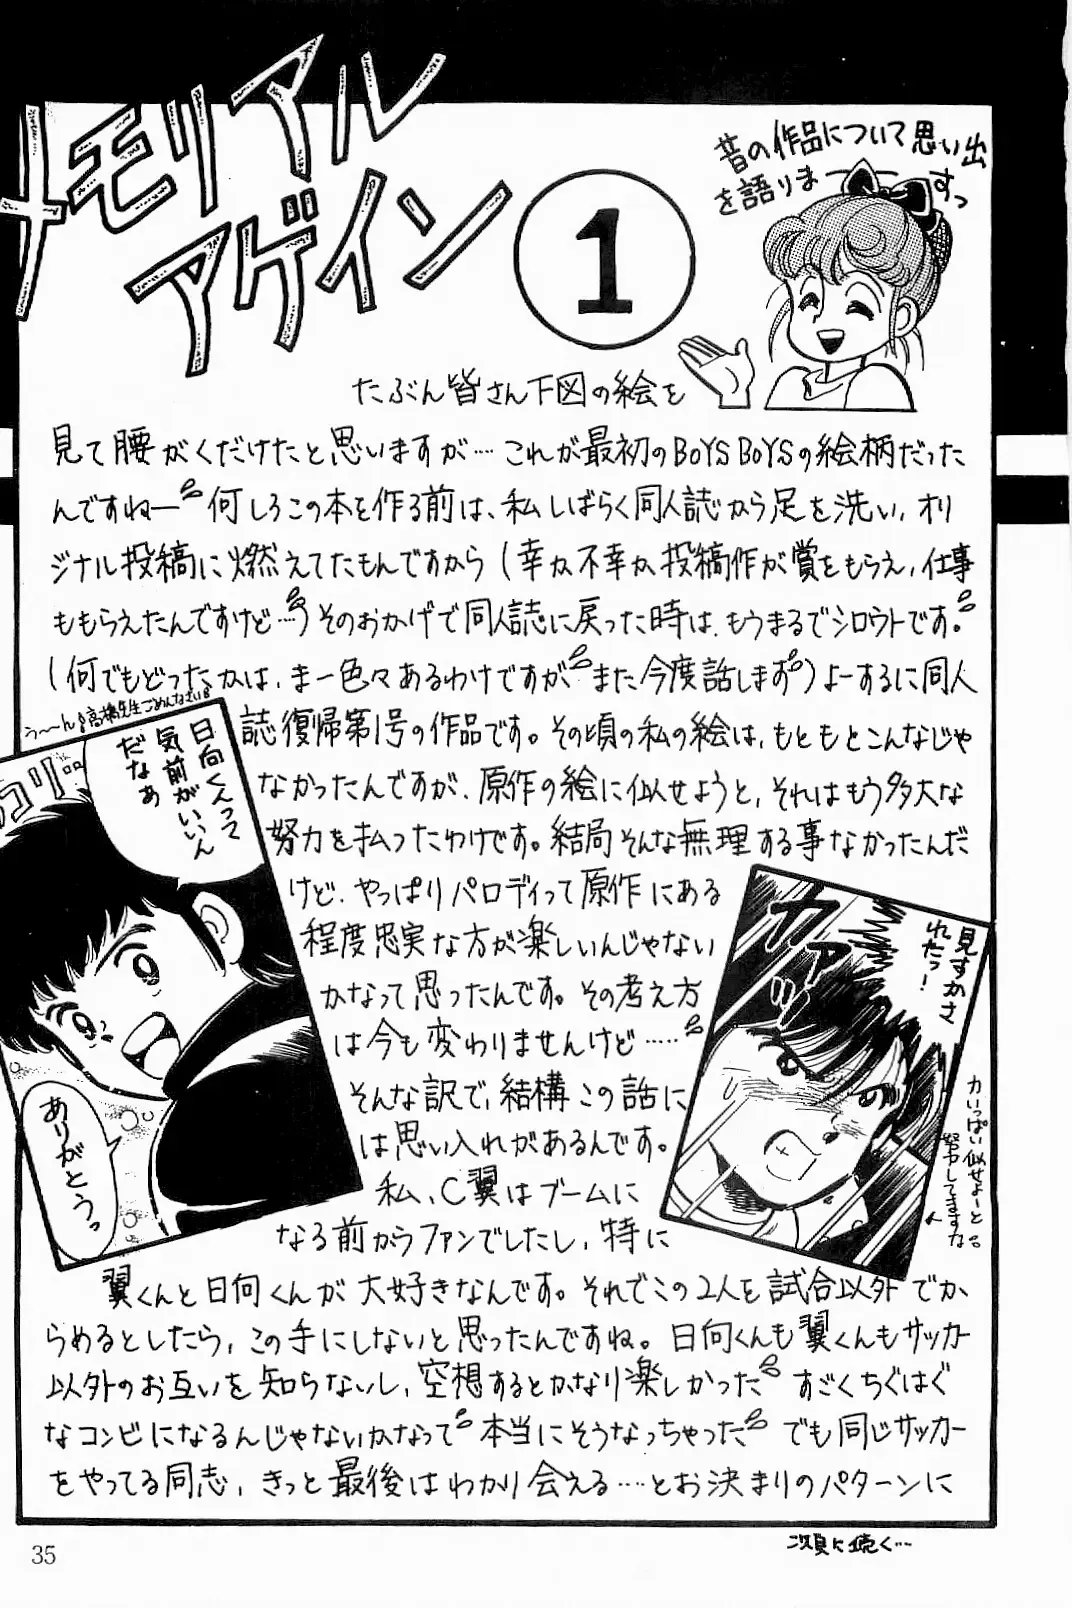 メモリアル
アゲイン
1
昔の作品について思い出
を語りま～～～すっ
たぶん皆さん下図の絵を
見て腰がくだけたと思いますが…これが最初のBOYS BOYSの絵柄だった
んですねー 何しろこの本を作る前は、私しばらく同人誌から足を洗い、オリ
ジナル投稿に燃えてたもんですから(幸か不幸か投稿作が賞をもらえ、仕事
ももらえたんですけど…)そのおかげで同人誌に戻った時は、もうまるでシロウトです。
(何でもどったかは、まー色々あるわけですが また今度話します)よーするに同人
誌復帰第1号の作品です。その頃の私の絵は、もともとこんなじゃ
なかったんですが、原作の絵に似せようと、それはもう多大な
努力を払ったわけです。結局そんな無理する事なかったんだ
けど、やっぱりパロディって原作にある
程度忠実な方が楽しいんじゃない
かなって思ったんです。その考え方
は今も変わりませんけど……
そんな訳で、結構この話に
は思い入れがあるんです。
私、C翼はブームに
なる前からファンでしたし、特に
翼くんと日向くんが大好きなんです。それでこの2人を試合以外でか
らめるとしたら、この手にしないと思ったんですね。日向くんも翼くんもサッカー
以外のお互いを知らないし、空想するとかなり楽しかった すごくちぐはぐ
なコンビになるんじゃないかなって 本当にそうなっちゃった でも同じサッカー
をやってる同志、きっと最後はわかり会える…とお決まりのパターンに
う～～ん 高橋先生ごめんなさい
日向くんって
気前がいいん
だなあ
ありがとうっ
カァッ
見すかさ
れたっ!
力いっぱい似せよーと
努力してますなー
次頁に続く…
35